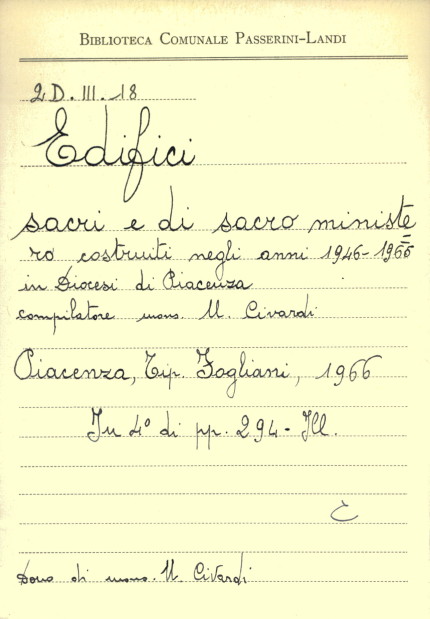 BIBLIOTECA COMUNALE PASSERINI-LANDI
2D. III. 18
Edifici
sacri e di sacro ministe=
ro costruiti negli anni 1946-1966
in Diocesi di Piacenza
compilatore mons. U. Civardi
Piacenza, Tip. Fogliani, 1966
In 4° di pp. 294 - Ill.
Dono di mons. U. Civardi